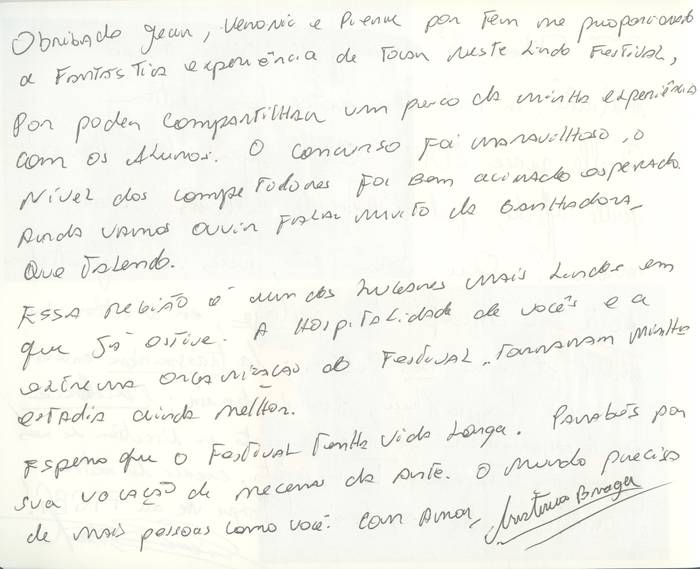 Obrigado Jean, Veronic e Pierre por tem me proporcionado
a Fantástica experiência de Tocar neste lindo Festival,
Por poder compartilhar um pouco da minha experiência
com os Alunos. O concurso foi maravilhoso, o
Nível dos competidores foi bem acima do esperado.
Ainda vamos ouvir falar muito da Ganhadora,
Que Talento.
Essa região é um dos lugares mais lindos em
que já estive. A Hospitalidade de vocês e a
extrema organização do Festival, Tornaram minha
estadia ainda melhor.
Espero que o Festival Tenha vida Longa. Parabéns por
sua vocação de mecenas da Arte. O mundo precisa
de mais pessoas como você. Com Amor, Cristina Braga